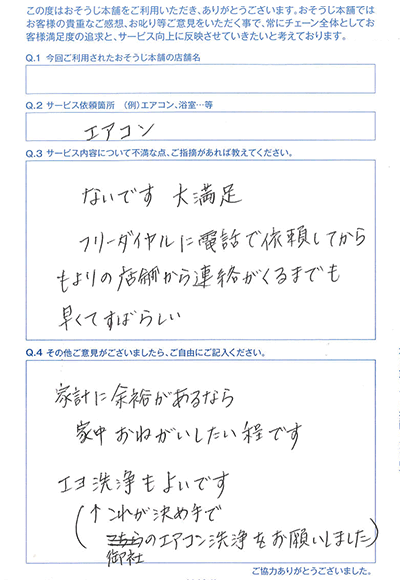 この度はおそうじ本舗をご利用いただき、ありがとうございます。おそうじ本舗では
お客様の貴重なご感想、お叱り等ご意見をいただく事で、常にチェーン全体としてお
客様満足度の追求と、サービス向上に反映させていきたいと考えております。
Q.1 今回ご利用されたおそうじ本舗の店舗名
Q.2 サービス依頼箇所 （例）エアコン、浴室…等
エアコン
Q.3 サービス内容について不満な点、ご指摘があれば教えてください。
ないです 大満足
フリーダイヤルに電話で依頼してから
もよりの店舗から連絡がくるまでも
早くてすばらしい
Q.4 その他ご意見がございましたら、ご自由にご記入ください。
家計に余裕があるなら
家中おねがいしたい程です
エコ洗浄もよいです
(↑これが決め手で
こちらのエアコン洗浄をお願いしました)
御社
ご協力ありがとうございました。